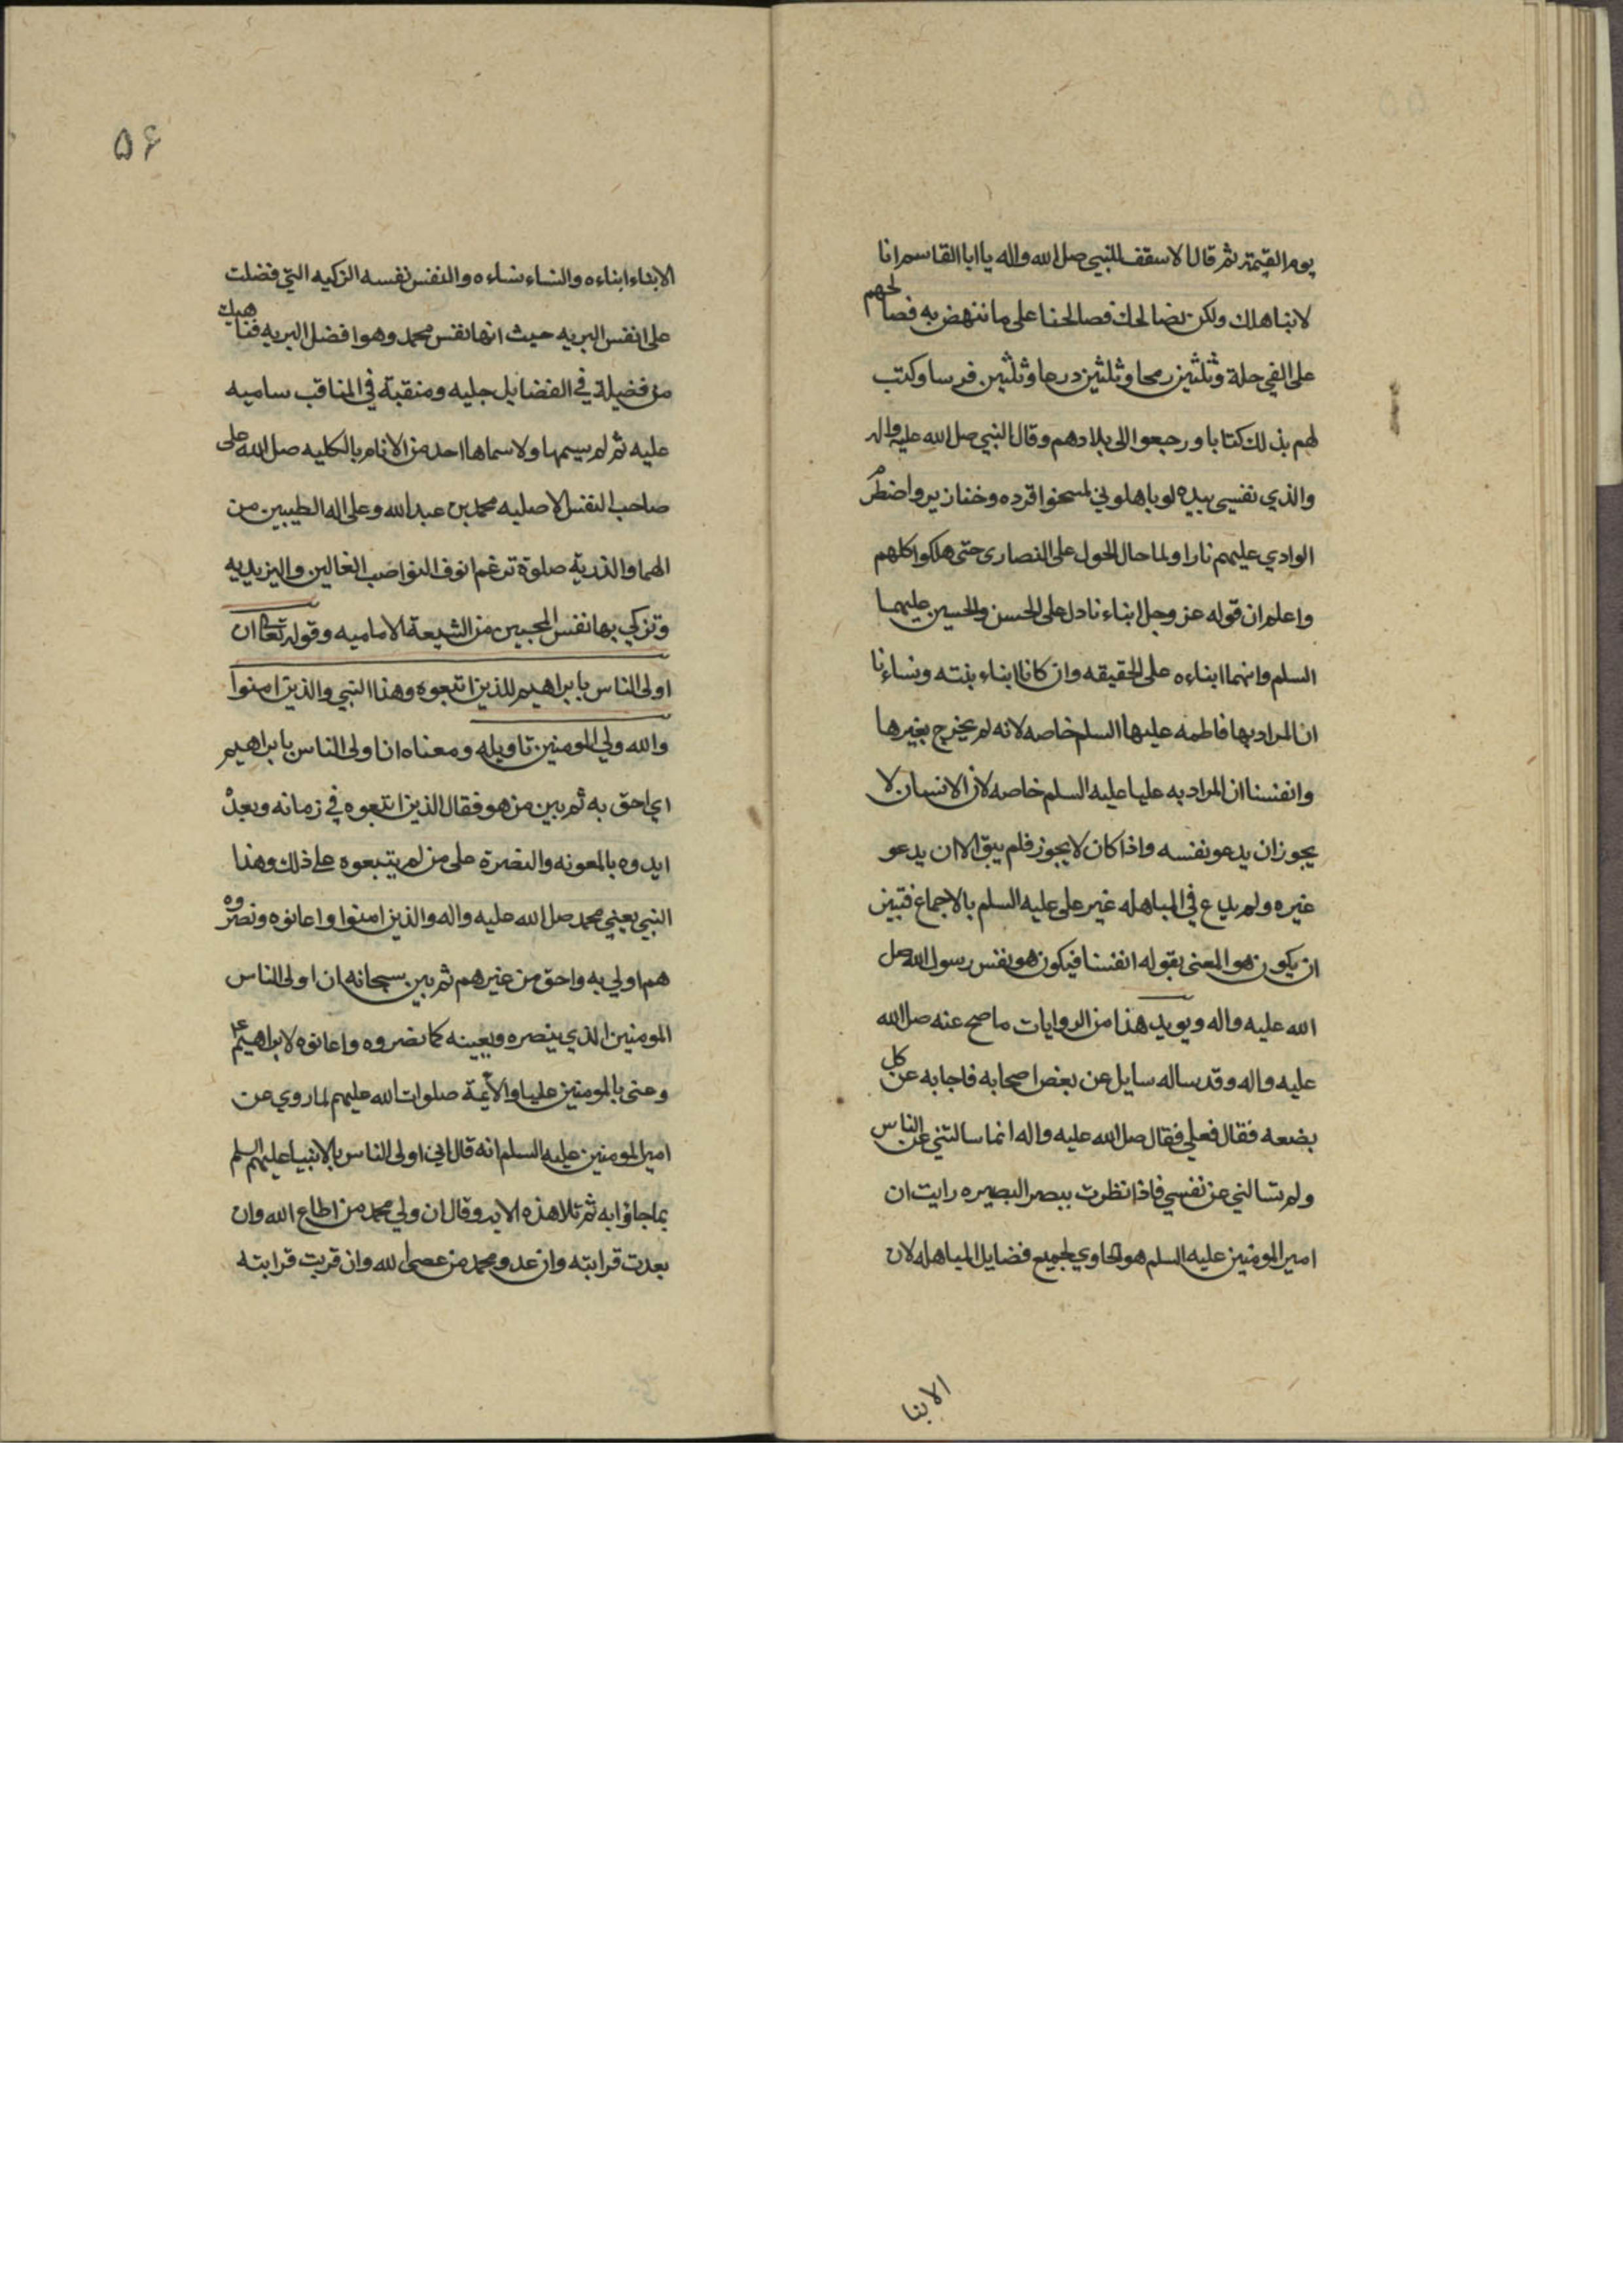 يوم القيمة ثم قال الاسقف للنبي صل الله واله يا ابا القاسم انا
لانباهلك ولكن نصالحك فصالحنا على ما ننهض به فصالحهم
على الفي حلة وثلثين رمحا وثلثين درعا وثلثين فرسا وكتب
لهم بذلك كتابا ورجعوا الى بلادهم وقال النبي صل الله عليه واله
والذي نفسي بيده لو باهلوني لمسخوا قرده وخنازير واضطرم
الوادي عليهم نارا ولما حال الحول على النصارى حتى هلكوا كلهم
واعلم ان قوله عز وجل ابناءنا دل على الحسن والحسين عليهما
السلم وانهما ابناءه على الحقيقه وان كانا ابناء بنته ونساءنا
ان المراد بها فاطمه عليها السلم خاصه لانه لم يخرج بغيرها
وانفسنا ان المراد به عليا عليه السلم خاصه لان الانسان لا
يجوز ان يدعو نفسه واذا كان لا يجوز فلم يبق الا ان يدعو
غيره ولم يدع في المباهله غير على عليه السلم بالاجماع فتبين
ان يكون هو المعنى بقوله انفسنا فيكون هو نفس رسول الله صل
الله عليه واله ويويد هذا من الروايات ما صح عنه صل الله
عليه واله وقد ساله سايل عن بعض اصحابه فاجابه عن كل
بضعه فقال فعلي فقال صل الله عليه واله انما سالتني عن الناس
ولم تسالني عن نفسي فاذا نظرت ببصر البصيره رايت ان
امير المومنين عليه السلم هو الحاوي لجميع فضايل المباهله لان
الابنا
٥۶
الابناء ابناءه والنساء نساءه والنفس نفسه الزكيه التي فضلت
على انفس البريه حيث انها نفس محمد وهو افضل البريه فناهيك
من فضيلة في الفضايل جليه ومنقبة في المناقب ساميه
عليه ثم لم يسمها ولا سماها احد من الانام بالكليه صل الله على
صاحب النفس الاصليه محمد بن عبد الله وعلى اله الطيبين من
الهما والذرية صلوة ترغم انوف النواصب الغالين واليزيديه
وتزكي بها نفس المحبين من الشيعة الاماميه وقوله تعالى ان
اولى الناس بابراهيم للذين اتبعوه وهذا النبي والذين امنوا
والله ولي المومنين تاويله ومعناه ان اولى الناس بابراهيم
اي احق به ثم بين من هو فقال الذين اتبعوه في زمانه وبعده
ايدوه بالمعونه والنصرة على من لم يتبعوه على ذلك وهذا
النبي يعني محمد صل الله عليه واله والذين امنوا واعانوه ونصروه
هم اولي به واحق من غيرهم ثم بين سبحانه ان اولى الناس
المومنين الذي ينصره ويعينه كما نصروه واعانوه لابراهيم ع
وعنى بالمومنين عليا والائمة صلوات الله عليهم لما روي عن
امير المومنين عليه السلم انه قال اني اولى الناس بالانبيا عليهم السلم
بما جاؤا به ثم تلا هذه الايه وقال ان ولي محمد من اطاع الله وان
بعدت قرابته وان عدو محمد من عصى الله وان قربت قرابته